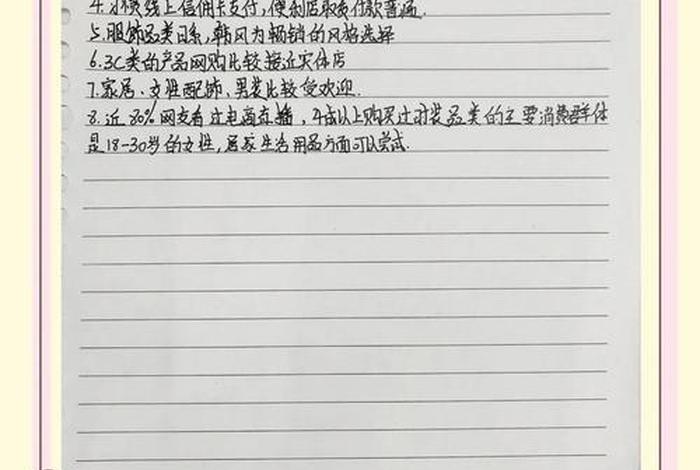 4.小镇线上信用卡支付,便利店取货付款普遍.
5.服饰品类日系,韩风为畅销的风格选择
6.3C类的产品网购比较接近实体店
7.家居、女性配饰、男装比较受欢迎.
8.近80%网友看过电商直播,4成以上购买过时装品类的主要消费群体
是18-30岁的女性,居家生活用品方面可以尝试.